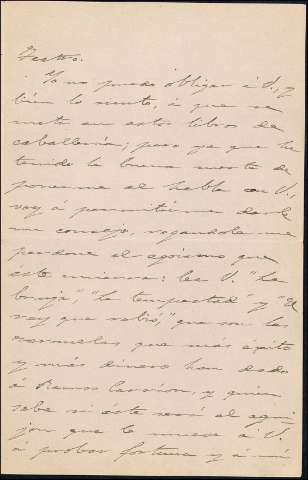 Teatro.
Yo no puedo obligar á V., y
bien lo siento, á que se
meta en estos libros de
caballería; pero ya que he
tenido la buena suerte de
ponerme al habla con V.,
voy á permitirme darle
un consejo, rogándole me
perdone el egoismo que
este encierra: lea V. "La
bruja," "La tempestad" y "El
rey que rabió," que son las
zarzuelas que más éxito
y más dinero han dado
á Ramos Carrión, y quien
sabe si este será el agui-
jon que le mueva á V.
á probar fortuna y á mi